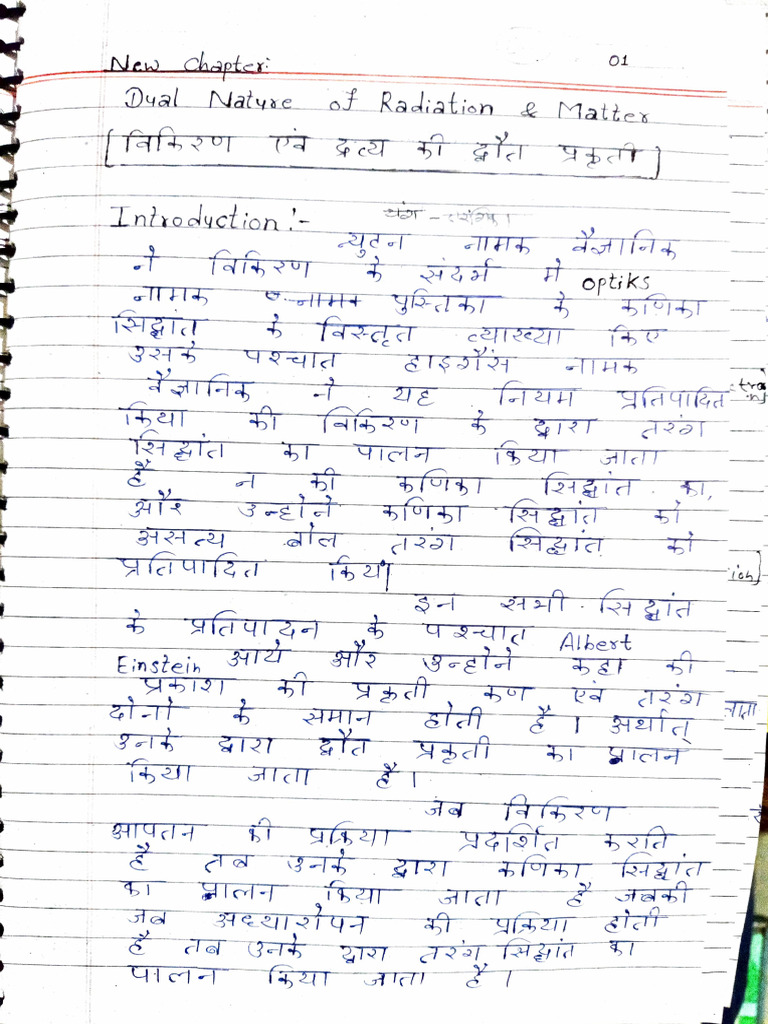 New Chapter:
01
Dual Nature of Radiation & Matter
[विकिरण एवं द्रव्य की द्वौत प्रकृती]
Introduction:-
न्युटन नामक वैज्ञानिक
ने विकिरण के संदर्भ मे optiks
नामक पुस्तिका के कणिका
सिद्धांत के विस्तृत व्याख्या किए
उसके पश्चात हाइगैंस नामक
वैज्ञानिक ने यह नियम प्रतिपादित
किया की विकिरण के द्वारा तरंग
सिद्धांत का पालन किया जाता
है न की कणिका सिद्धांत का,
और उन्होने कणिका सिद्धांत को
असत्य बोल तरंग सिद्धांत को
प्रतिपादित किया|
इन सभी सिद्धांत
के प्रतिपादन के पश्चात Albert
Einstein आये और उन्होने कहा की
प्रकाश की प्रकृती कण एवं तरंग
दोनो के समान होती है । अर्थात्
उनके द्वारा द्वौत प्रकृती का पालन
किया जाता है ।
जब विकिरण
आपतन की प्रक्रिया प्रदर्शित करति
है तब उनके द्वारा कणिका सिद्धांत
का पालन किया जाता है जबकी
जब अध्यारोपन की प्रक्रिया होती
है तब उनके द्वारा तरंग सिद्धांत का
पालन किया जाता है ।